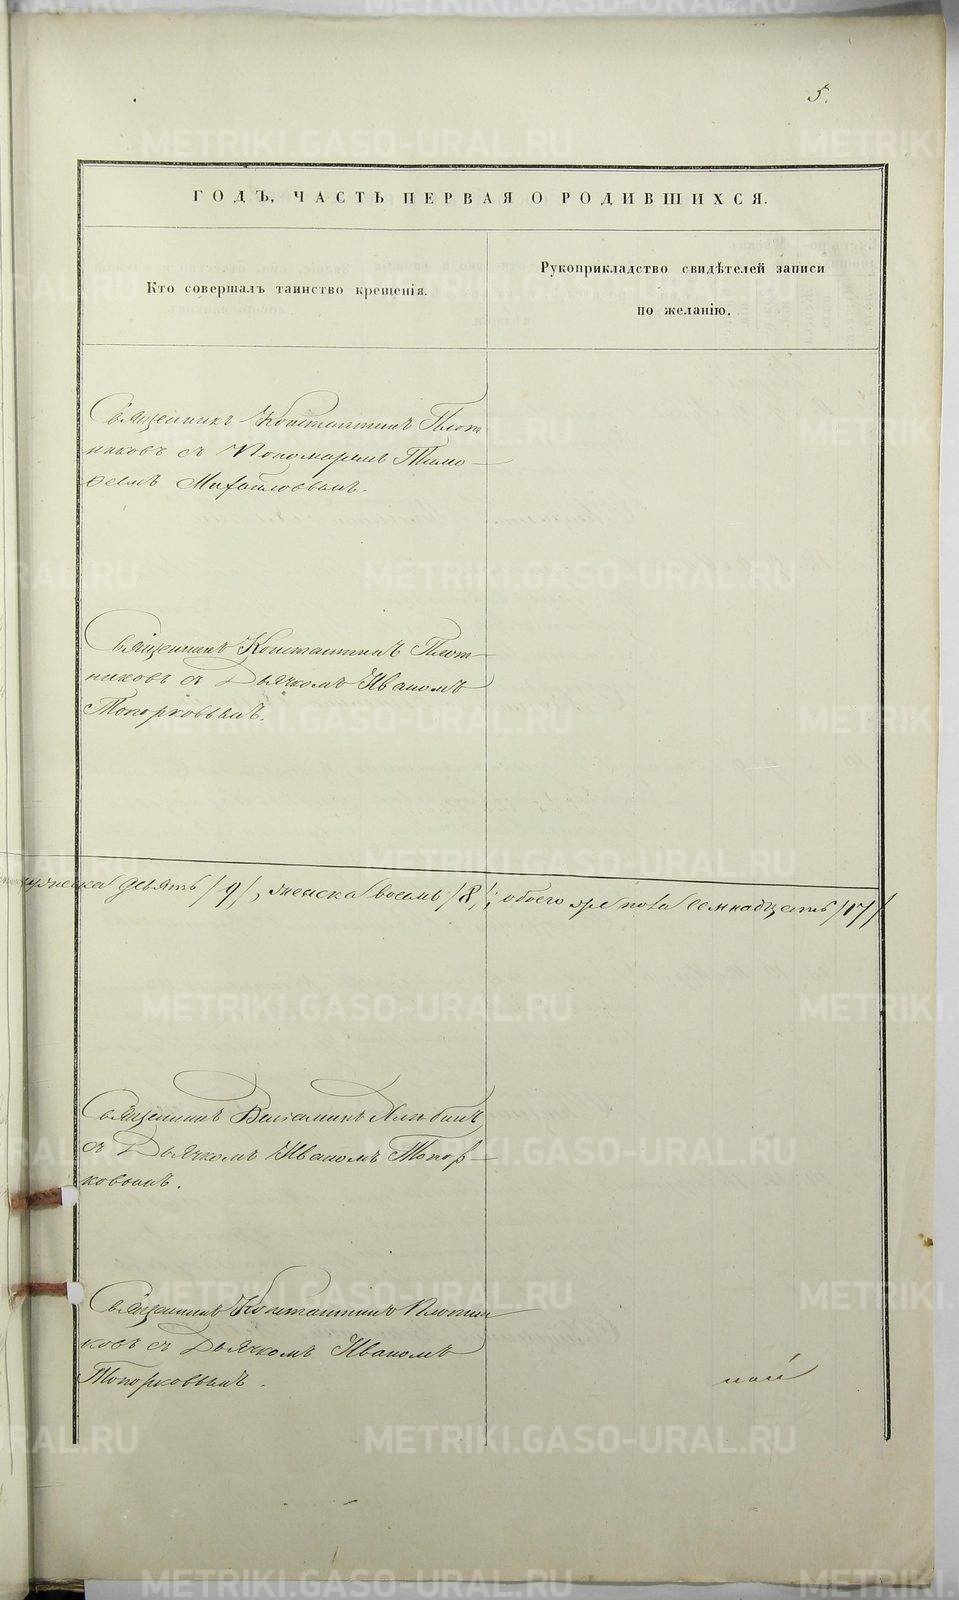 5.
ГОДЪ, ЧАСТЬ ПЕРВАЯ О РОДИВШИХСЯ.
Кто совершалъ таинство крещенія.
Рукоприкладство свидѣтелей записи
по желанію.
Священникъ Константинъ Плот
никовъ съ Пономаремъ Тимо-
ѳеемъ Михайловымъ.
Священникъ Константинъ Плот-
никовъ съ Дьячкомъ Иваномъ
Топорковымъ.
мужеска девять /9/, женска восемь /8/; обоего же пола семнадцать /17/
Священникъ Веніаминъ
съ Дьячкомъ Иваномъ Топор-
ковымъ.
Священникъ Константинъ Плотни
ковъ съ Дьячкомъ Иваномъ
Топорковымъ.
ной
METRIKI.GASO-URAL.RU